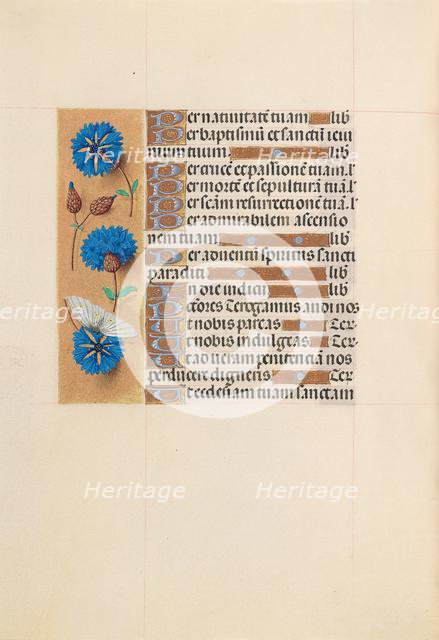 Per nativitatē tuam lib
Per baptismū et sanctū ieiu
nium tuum lib
Per crucē et passionē tuam l'
Per mortē et sepulturā tuā l'
Per scām resurrectionē tuā l'
Per admirabilem ascensio
nem tuam lib
Per adventū spiritus sancti
paracliti lib
In die iudicii
Peccatores Te rogamus audi nos
Ut nobis parcas Ter
Ut nobis indulgeas Ter
Ut ad veram penitentiā nos
perducere digneris Ter
Ut ecclesiam tuam sanctam
Heritage Heritage
Heritage Heritage
Heritage Heritage